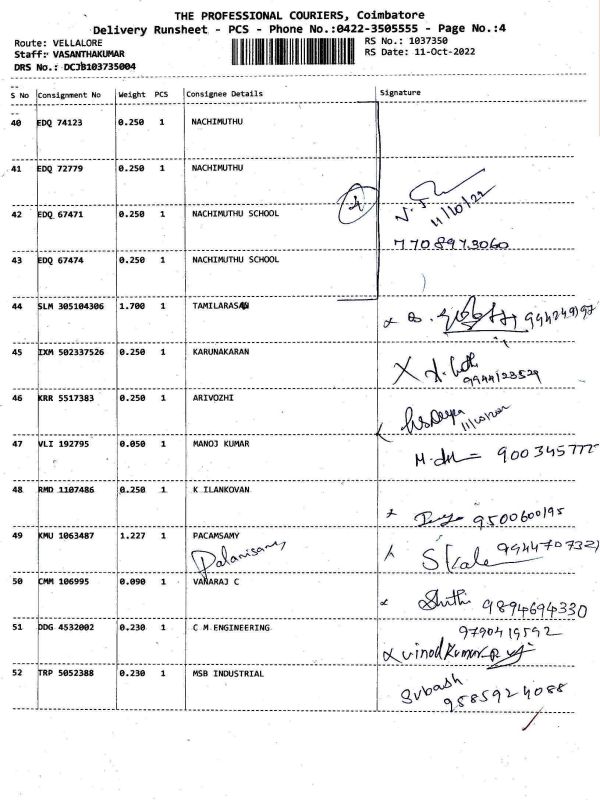 THE PROFESSIONAL COURIERS, Coimbatore
Delivery Runsheet - PCS - Phone No.:0422-3505555 - Page No.:4
Route: VELLALORE
RS No.: 1037350
Staff: VASANTHAKUMAR
RS Date: 11-Oct-2022
DRS No.: DCJB103735004
S No Consignment No Weight PCS Consignee Details Signature
40 EDQ 74123 0.250 1 NACHIMUTHU
41 EDQ 72779 0.250 1 NACHIMUTHU
4
11/10/22
42 EDQ 67471 0.250 1 NACHIMUTHU SCHOOL
7708973060
43 EDQ 67474 0.250 1 NACHIMUTHU SCHOOL
44 SLM 305104306 1.700 1 TAMILARASAN
45 IXM 502337526 0.250 1 KARUNAKARAN
9944123529
46 KRR 5517383 0.250 1 ARIVOZHI
47 VLI 192795 0.050 1 MANOJ KUMAR
48 RMD 1107486 0.250 1 K ILANKOVAN
9500600195
49 KMU 1063487 1.227 1 PACAMSAMY
Palanisamy
50 CMM 106995 0.090 1 VANARAJ C
9894694330
51 DDG 4532002 0.230 1 C M ENGINEERING
9790419592
vinodkumar
52 TRP 5052388 0.230 1 MSB INDUSTRIAL
Subash
9585924088